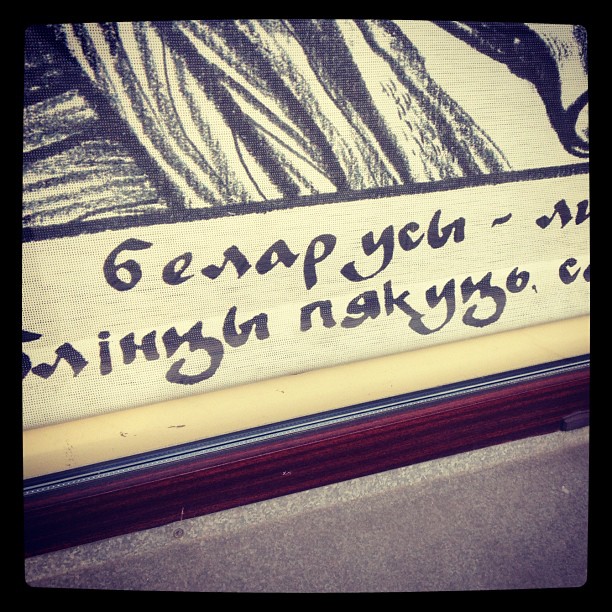 беларусы - ли
блінцы пякуць. со